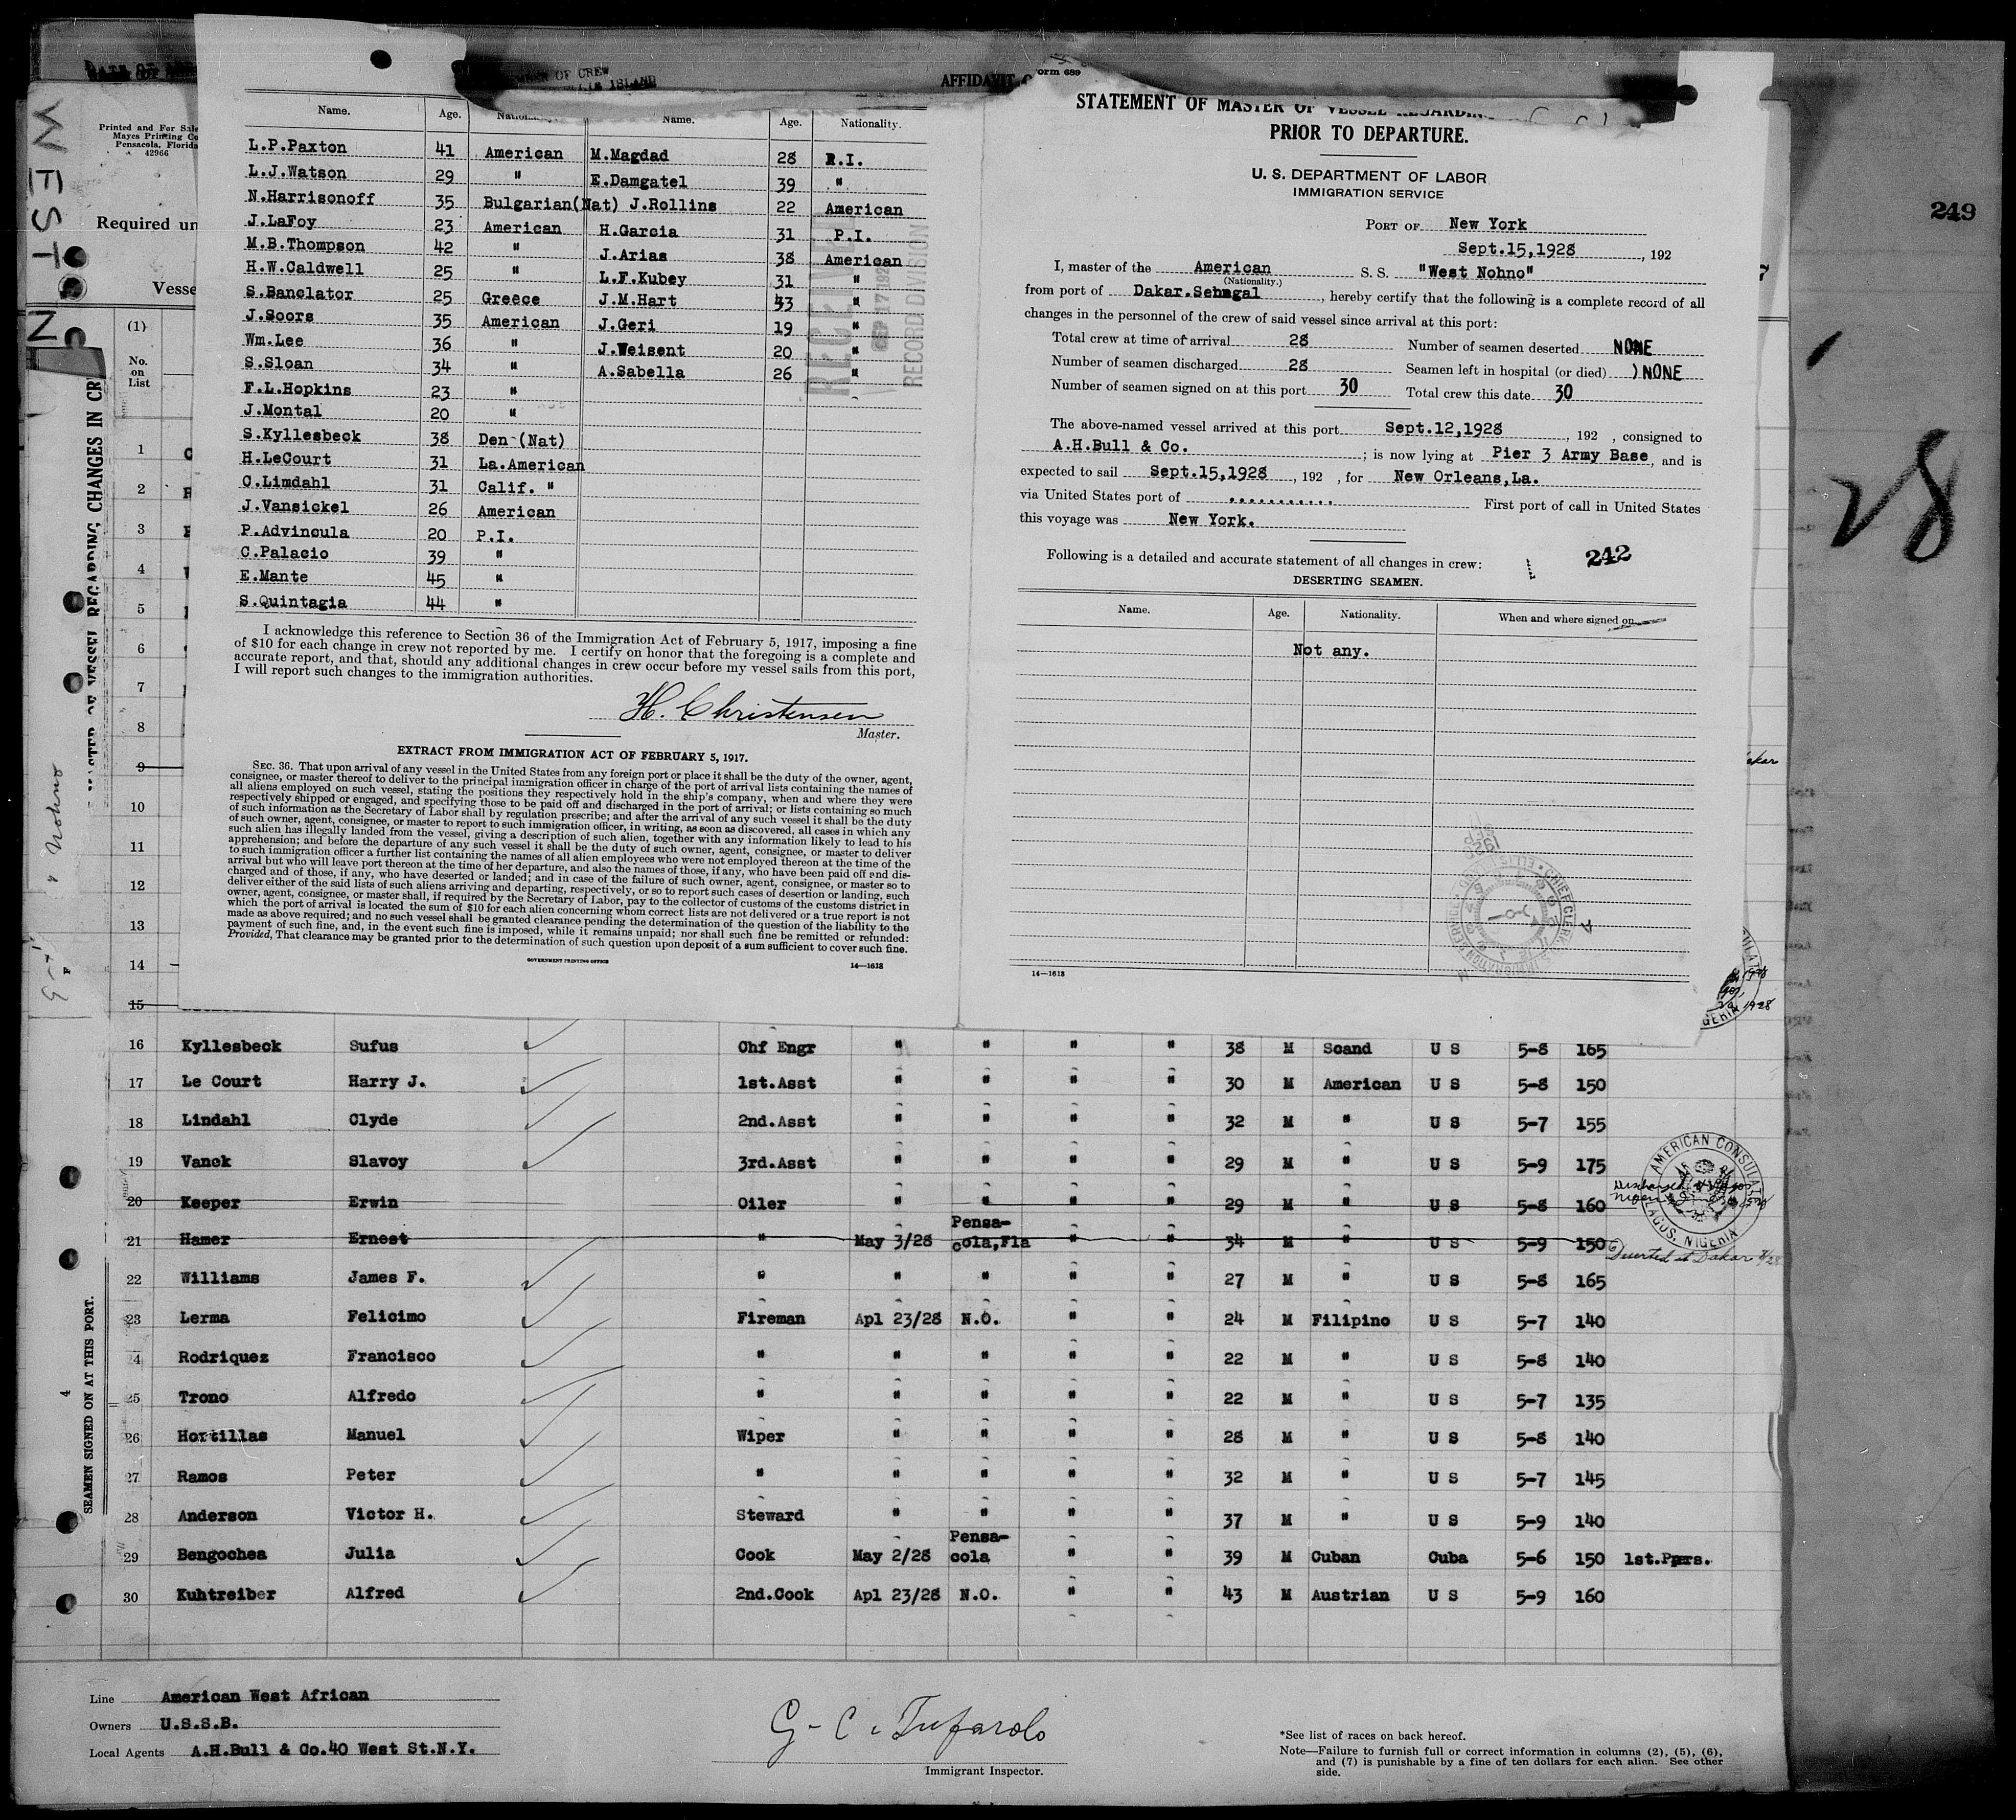 249
28
WEST N
Nohno
Printed and For Sale
Mayes Printing Co
Pensacola, Florida
42966
Required un
Vesse
(1)
No.
on
List
MBER OF CREW
AFFIDAVIT
orm 689
Name. Age. Name. Age. Nationality.
L.P.Paxton 41 American M.Magdad 28 P.I.
L.J.Watson 29 " E.Damgatel 39 "
N.Harrisonoff 35 Bulgarian(Nat) J.Rollins 22 American
J.LaFoy 23 American H.Garcia 31 P.I.
M.B.Thompson 42 " J.Arias 38 American
H.W.Caldwell 25 " L.F.Kubey 31 "
S.Banclator 25 Greece J.M.Hart 43 "
J.Soors 35 American J.Geri 19 "
Wm.Lee 36 " J.Weisent 20 "
S.Sloan 34 " A.Sabella 26 "
F.L.Hopkins 23 "
J.Montal 20 "
S.Kyllesbeck 38 Den (Nat)
H.LeCourt 31 La.American
C.Limdahl 31 Calif. "
J.Vansickel 26 American
P.Advincula 20 P.I.
C.Palacio 39 "
E.Mante 45 "
S.Quintagia 44 "
RECEIVED
RECORD DIVISION
I acknowledge this reference to Section 36 of the Immigration Act of February 5, 1917, imposing a fine
of $10 for each change in crew not reported by me. I certify on honor that the foregoing is a complete and
accurate report, and that, should any additional changes in crew occur before my vessel sails from this port,
I will report such changes to the immigration authorities.
H. Christensen
Master.
EXTRACT FROM IMMIGRATION ACT OF FEBRUARY 5, 1917.
SEC. 36. That upon arrival of any vessel in the United States from any foreign port or place it shall be the duty of the owner, agent,
consignee, or master thereof to deliver to the principal immigration officer in charge of the port of arrival lists containing the names of
all aliens employed on such vessel, stating the positions they respectively hold in the ship's company, when and where they were
respectively shipped or engaged, and specifying those to be paid off and discharged in the port of arrival; or lists containing so much
of such information as the Secretary of Labor shall by regulation prescribe; and after the arrival of any such vessel it shall be the duty
of such owner, agent, consignee, or master to report to such immigration officer, in writing, as soon as discovered, all cases in which any
such alien has illegally landed from the vessel, giving a description of such alien, together with any information likely to lead to his
apprehension; and before the departure of any such vessel it shall be the duty of such owner, agent, consignee, or master to deliver
to such immigration officer a further list containing the names of all alien employees who were not employed thereon at the time of the
arrival but who will leave port thereon at the time of her departure, and also the names of those, if any, who have been paid off and dis-
charged and of those, if any, who have deserted or landed; and in case of the failure of such owner, agent, consignee, or master so to
deliver either of the said lists of such aliens arriving and departing, respectively, or so to report such cases of desertion or landing, such
owner, agent, consignee, or master shall, if required by the Secretary of Labor, pay to the collector of customs of the customs district in
which the port of arrival is located the sum of $10 for each alien concerning whom correct lists are not delivered or a true report is not
made as above required; and no such vessel shall be granted clearance pending the determination of the question of the liability to the
payment of such fine, and, in the event such fine is imposed, while it remains unpaid; nor shall such fine be remitted or refunded:
Provided, That clearance may be granted prior to the determination of such question upon deposit of a sum sufficient to cover such fine.
GOVERNMENT PRINTING OFFICE 14—1618
STATEMENT OF MASTER OF VESSEL REGARDING
PRIOR TO DEPARTURE.
U. S. DEPARTMENT OF LABOR
IMMIGRATION SERVICE
PORT OF New York
Sept.15,1928, 192
I, master of the American S. S. "West Nohno"
(Nationality.)
from port of Dakar.Senagal, hereby certify that the following is a complete record of all
changes in the personnel of the crew of said vessel since arrival at this port:
Total crew at time of arrival 28 Number of seamen deserted NONE
Number of seamen discharged 28 Seamen left in hospital (or died) ) NONE
Number of seamen signed on at this port 30 Total crew this date 30
The above-named vessel arrived at this port Sept.12,1928, 192 , consigned to
A.H.Bull & Co. ; is now lying at Pier 3 Army Base, and is
expected to sail Sept.15,1928, 192 , for New Orleans,La.
via United States port of ........... First port of call in United States
this voyage was New York.
Following is a detailed and accurate statement of all changes in crew:
242
DESERTING SEAMEN.
Name. Age. Nationality. When and where signed on
Not any.
14—1618
1
2
3
4
5
6
7
8
9
10
11
12
13
14
15
16 Kyllesbeck Sufus Chf Engr " " " " 38 M Scand U S 5-8 165
17 Le Court Harry J. 1st.Asst " " " " 30 M American U S 5-8 150
18 Lindahl Clyde 2nd.Asst " " " " 32 M " U S 5-7 155
19 Vanek Slavoy 3rd.Asst " " " " 29 M " U S 5-9 175
20 Keeper Erwin Oiler " " " " 29 M " U S 5-8 160
21 Hamer Ernest " May 3/28 Pensa-cola,Fla " " 34 M " U S 5-9 150 Deserted at Dakar
22 Williams James F. " " " " " 27 M " U S 5-8 165
23 Lerma Felicimo Fireman Apl 23/28 N.O. " " 24 M Filipino U S 5-7 140
24 Rodriquez Francisco " " " " " 22 M " U S 5-8 140
25 Trono Alfredo " " " " " 22 M " U S 5-7 135
26 Hortillas Manuel Wiper " " " " 28 M " U S 5-8 140
27 Ramos Peter " " " " " 32 M " U S 5-7 145
28 Anderson Victor H. Steward " " " " 37 M " U S 5-9 140
29 Bengochea Julia Cook May 2/28 Pensa-cola " " 39 M Cuban Cuba 5-6 150 1st.Pers.
30 Kuhtreiber Alfred 2nd.Cook Apl 23/28 N.O. " " 43 M Austrian U S 5-9 160
AMERICAN CONSULATE
LAGOS, NIGERIA
SEAMEN SIGNED ON AT THIS PORT.
4
Line American West African
Owners U.S.S.B.
Local Agents A.H.Bull & Co.40 West St.N.Y.
G. C. Tufarolo
Immigrant Inspector.
*See list of races on back hereof.
Note—Failure to furnish full or correct information in columns (2), (5), (6),
and (7) is punishable by a fine of ten dollars for each alien. See other
side.